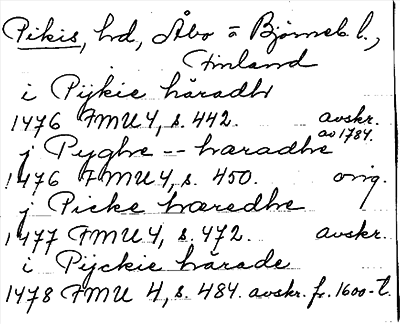 Pikis, hd, Åbo = Björneb. l.,
Finland
i Pijkie häradh
1476 FMU 4, s. 442. avskr.
av 1784.
j Pyghe -- hæradhe
1476 FMU 4, s. 450. orig.
j Picke hæredhe
1477 FMU 4, s. 472. avskr.
i Pijckie härade
1478 FMU 4, s. 484. avskr. fr. 1600-t.